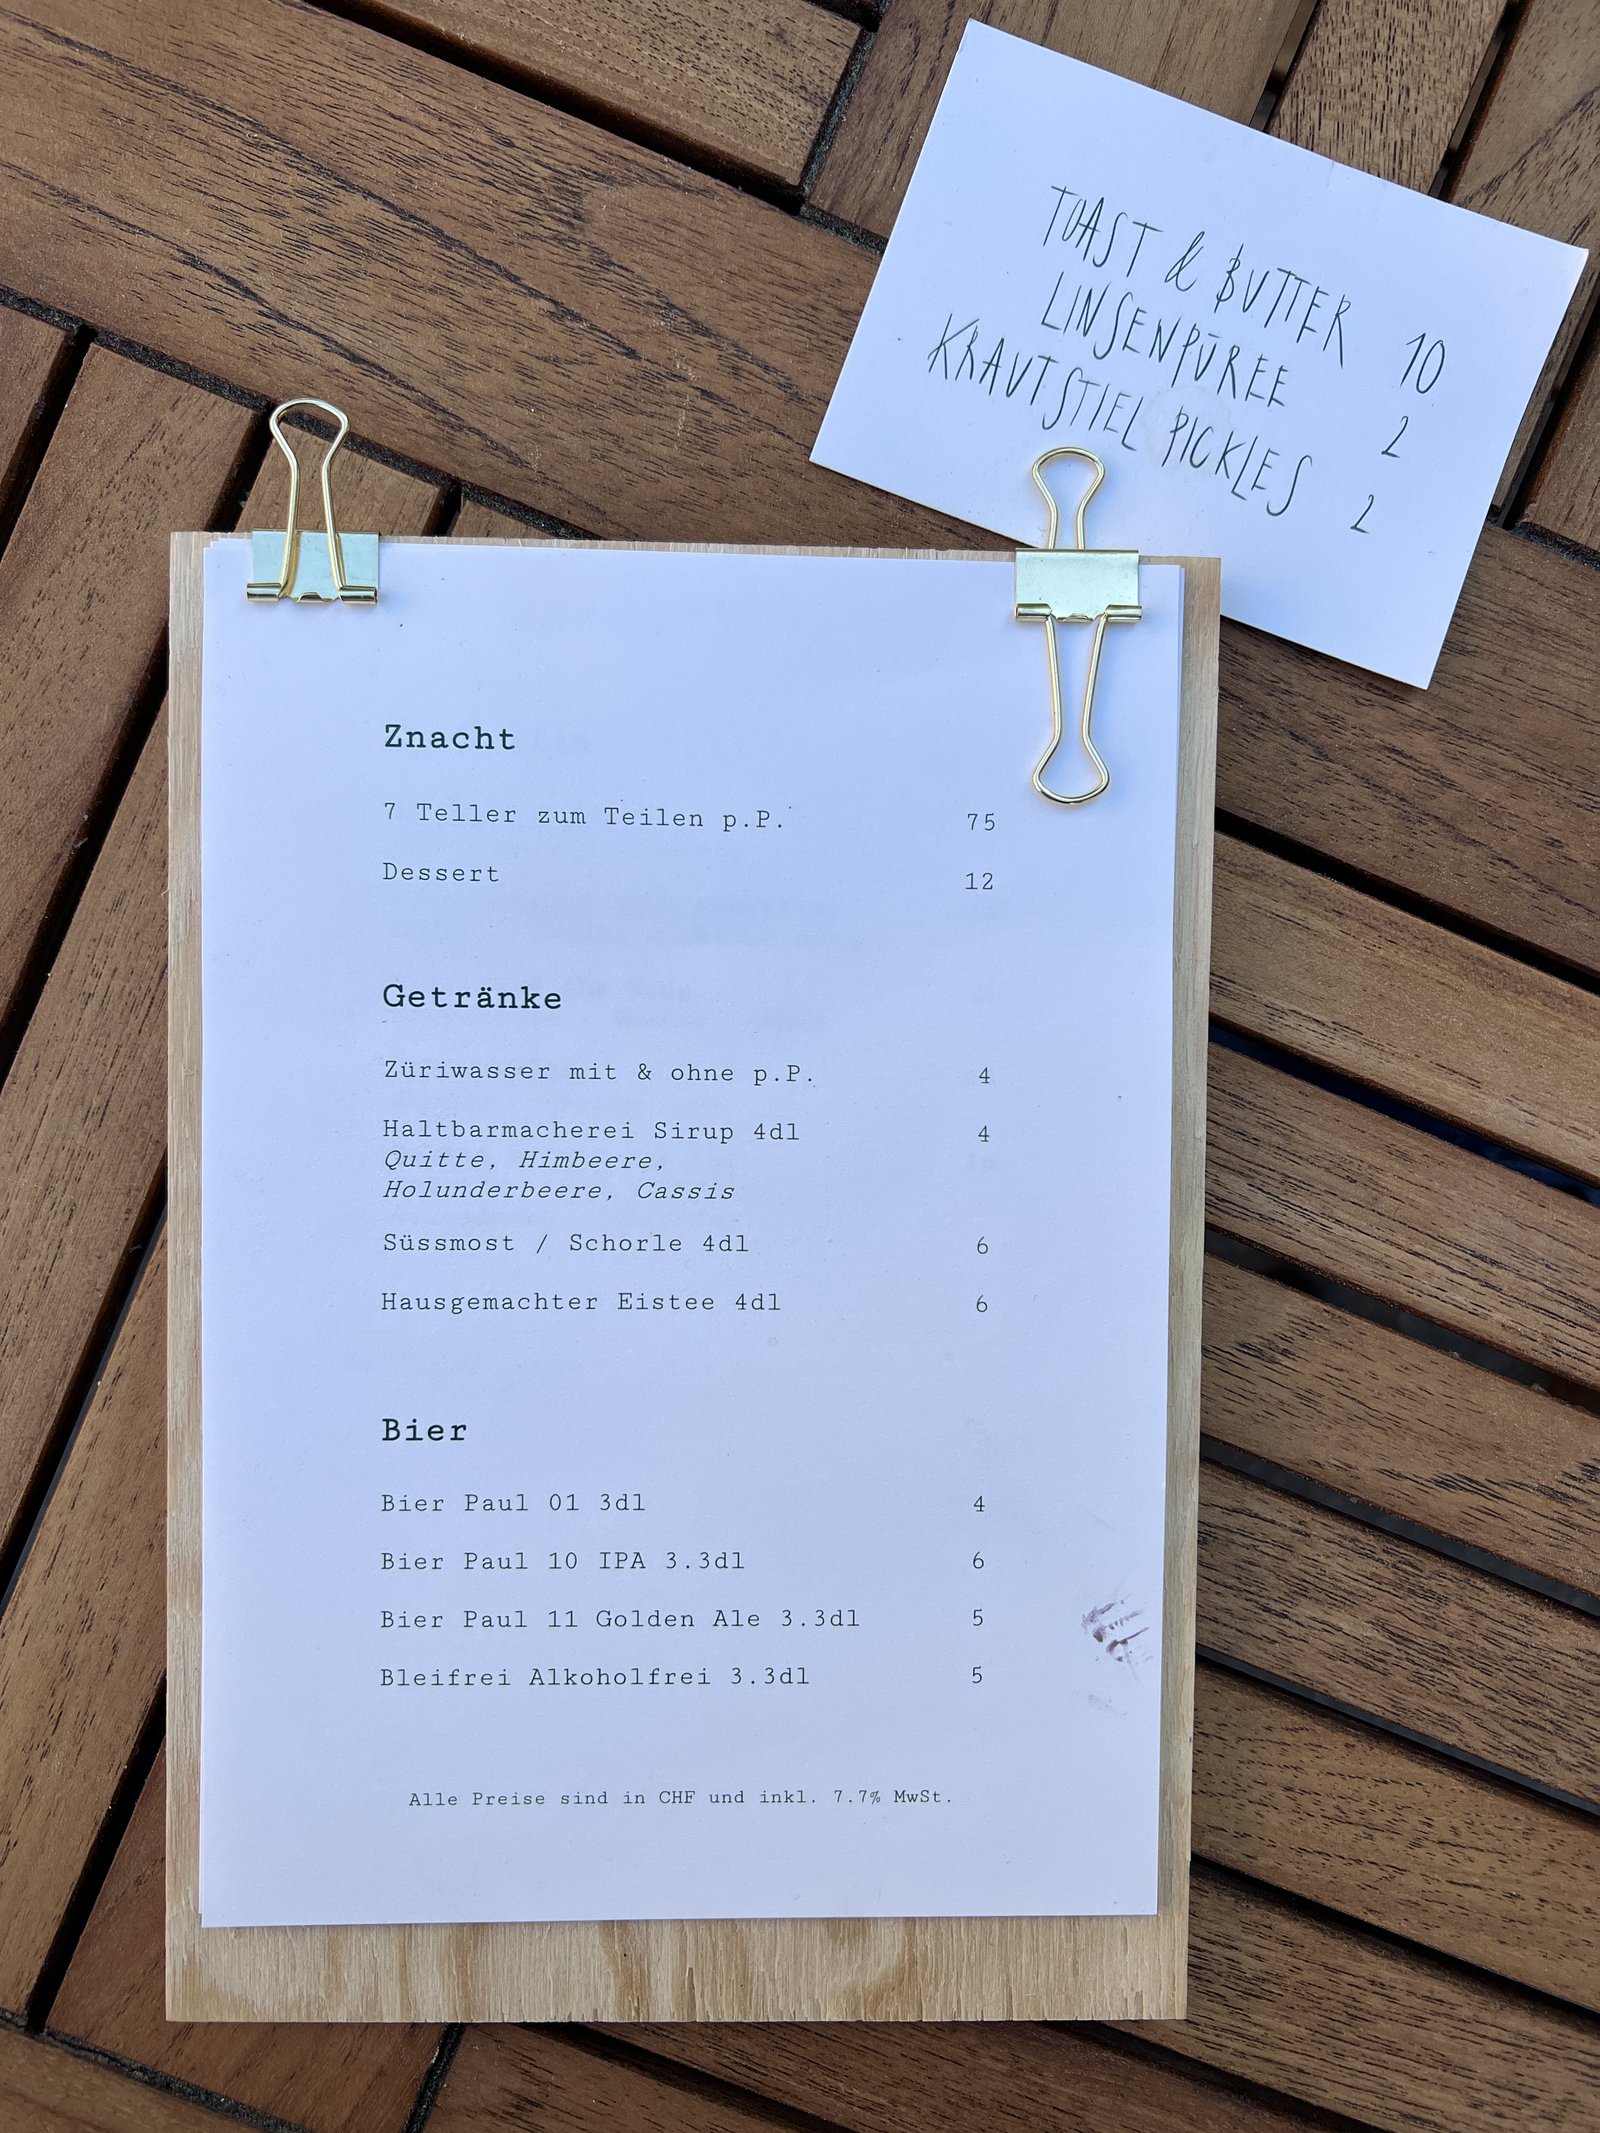 TOAST & BUTTER 10
LINSENPÜREE 2
KRAUTSTIEL PICKLES 2
Znacht
7 Teller zum Teilen p.P. 75
Dessert 12
Getränke
Züriwasser mit & ohne p.P. 4
Haltbarmacherei Sirup 4dl 4
Quitte, Himbeere,
Holunderbeere, Cassis
Süssmost / Schorle 4dl 6
Hausgemachter Eistee 4dl 6
Bier
Bier Paul 01 3dl 4
Bier Paul 10 IPA 3.3dl 6
Bier Paul 11 Golden Ale 3.3dl 5
Bleifrei Alkoholfrei 3.3dl 5
Alle Preise sind in CHF und inkl. 7.7% MwSt.